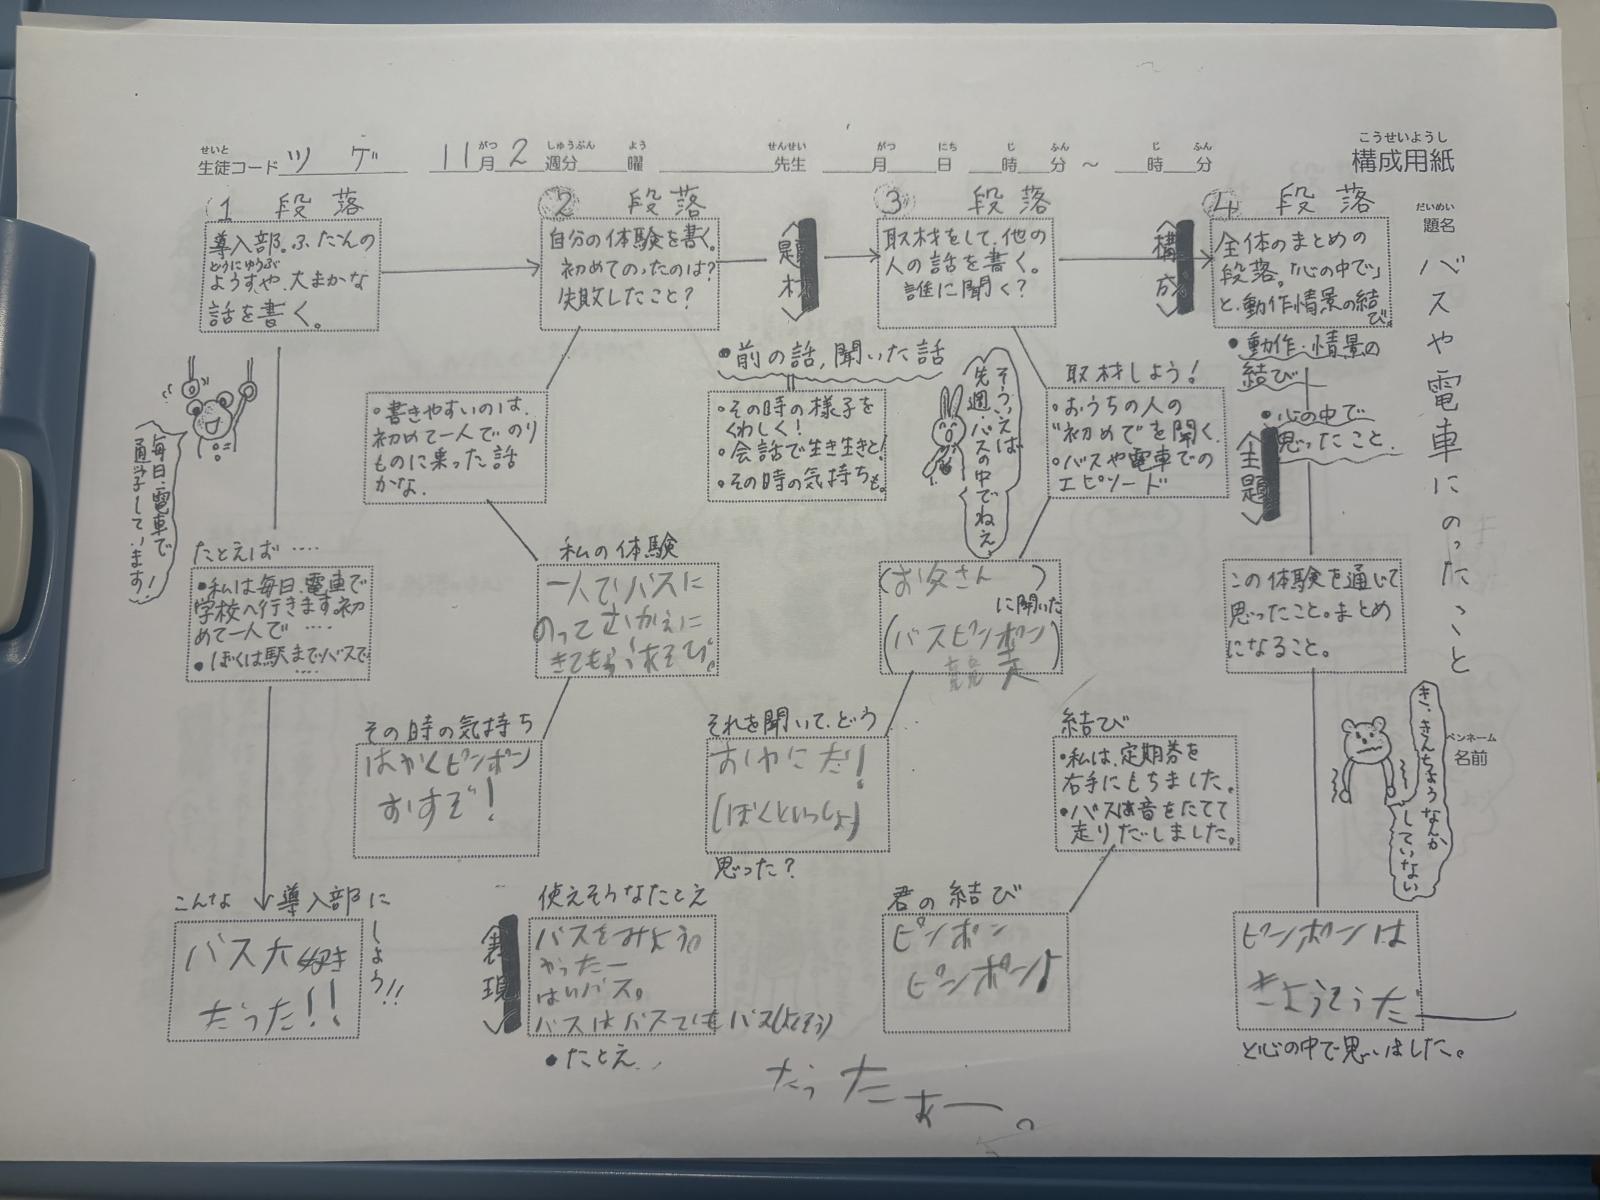 こうせいようし
構成用紙
せいと
生徒コード ツゲ
がつ しゅうぶん よう
11月2週分 曜
せんせい
先生
がつ にち じ ふん じ ふん
月 日 時 分 ～ 時 分
だいめい
題名
バスや電車にのったこと
ペンネーム
名前
1 段落
導入部。ふだんの
どうにゅうぶ
ようすや、大まかな
話を書く。
毎日、電車で
通学しています！
たとえば‥‥
・私は毎日、電車で
学校へ行きます。初
めて一人で‥‥
・ぼくは駅までバスで
‥‥
こんな導入部にしよう!!
バス大好き
だった!!
2 段落
自分の体験を書く。
初めてのったのは?
失敗したこと?
・書きやすいのは、
初めて一人でのり
ものに乗った話
かな。
私の体験
一人でバスに
のってむかえに
きてもらう
その時の気持ち
はやくピンポン
おすぞ!
題材
・前の話,聞いた話
・その時の様子を
くわしく!
・会話で生き生きと!
・その時の気持ちも。
3 段落
取材をして、他の
人の話を書く。
誰に聞く?
そういえば
先週、バスの中でねえ
取材しよう!
・おうちの人の
"初めて"を聞く。
・バスや電車での
エピソード
(お父さん)
に聞いた
(バスピンポン)
競走
それを聞いて、どう
おやにだ!
(ぼくといっしょ)
思った?
使えそうなたとえ
バスをみよう。
やったー
はいバス。
バスはバスでもバス
表現
・たとえ
だったおー。
構成
4 段落
全体のまとめの
段落。「心の中で」
と、動作情景の結び。
・動作・情景の
結び
・心の中で
思ったこと
主題
この体験を通じて
思ったこと。まとめ
になること。
き、きんちょうなんか
していない
結び
・私は、定期券を
右手にもちました。
・バスは音をたてて
走りだしました。
君の結び
ピンポン
ピンポン!
ピンポンは
きょうそうだ
と心の中で思いました。